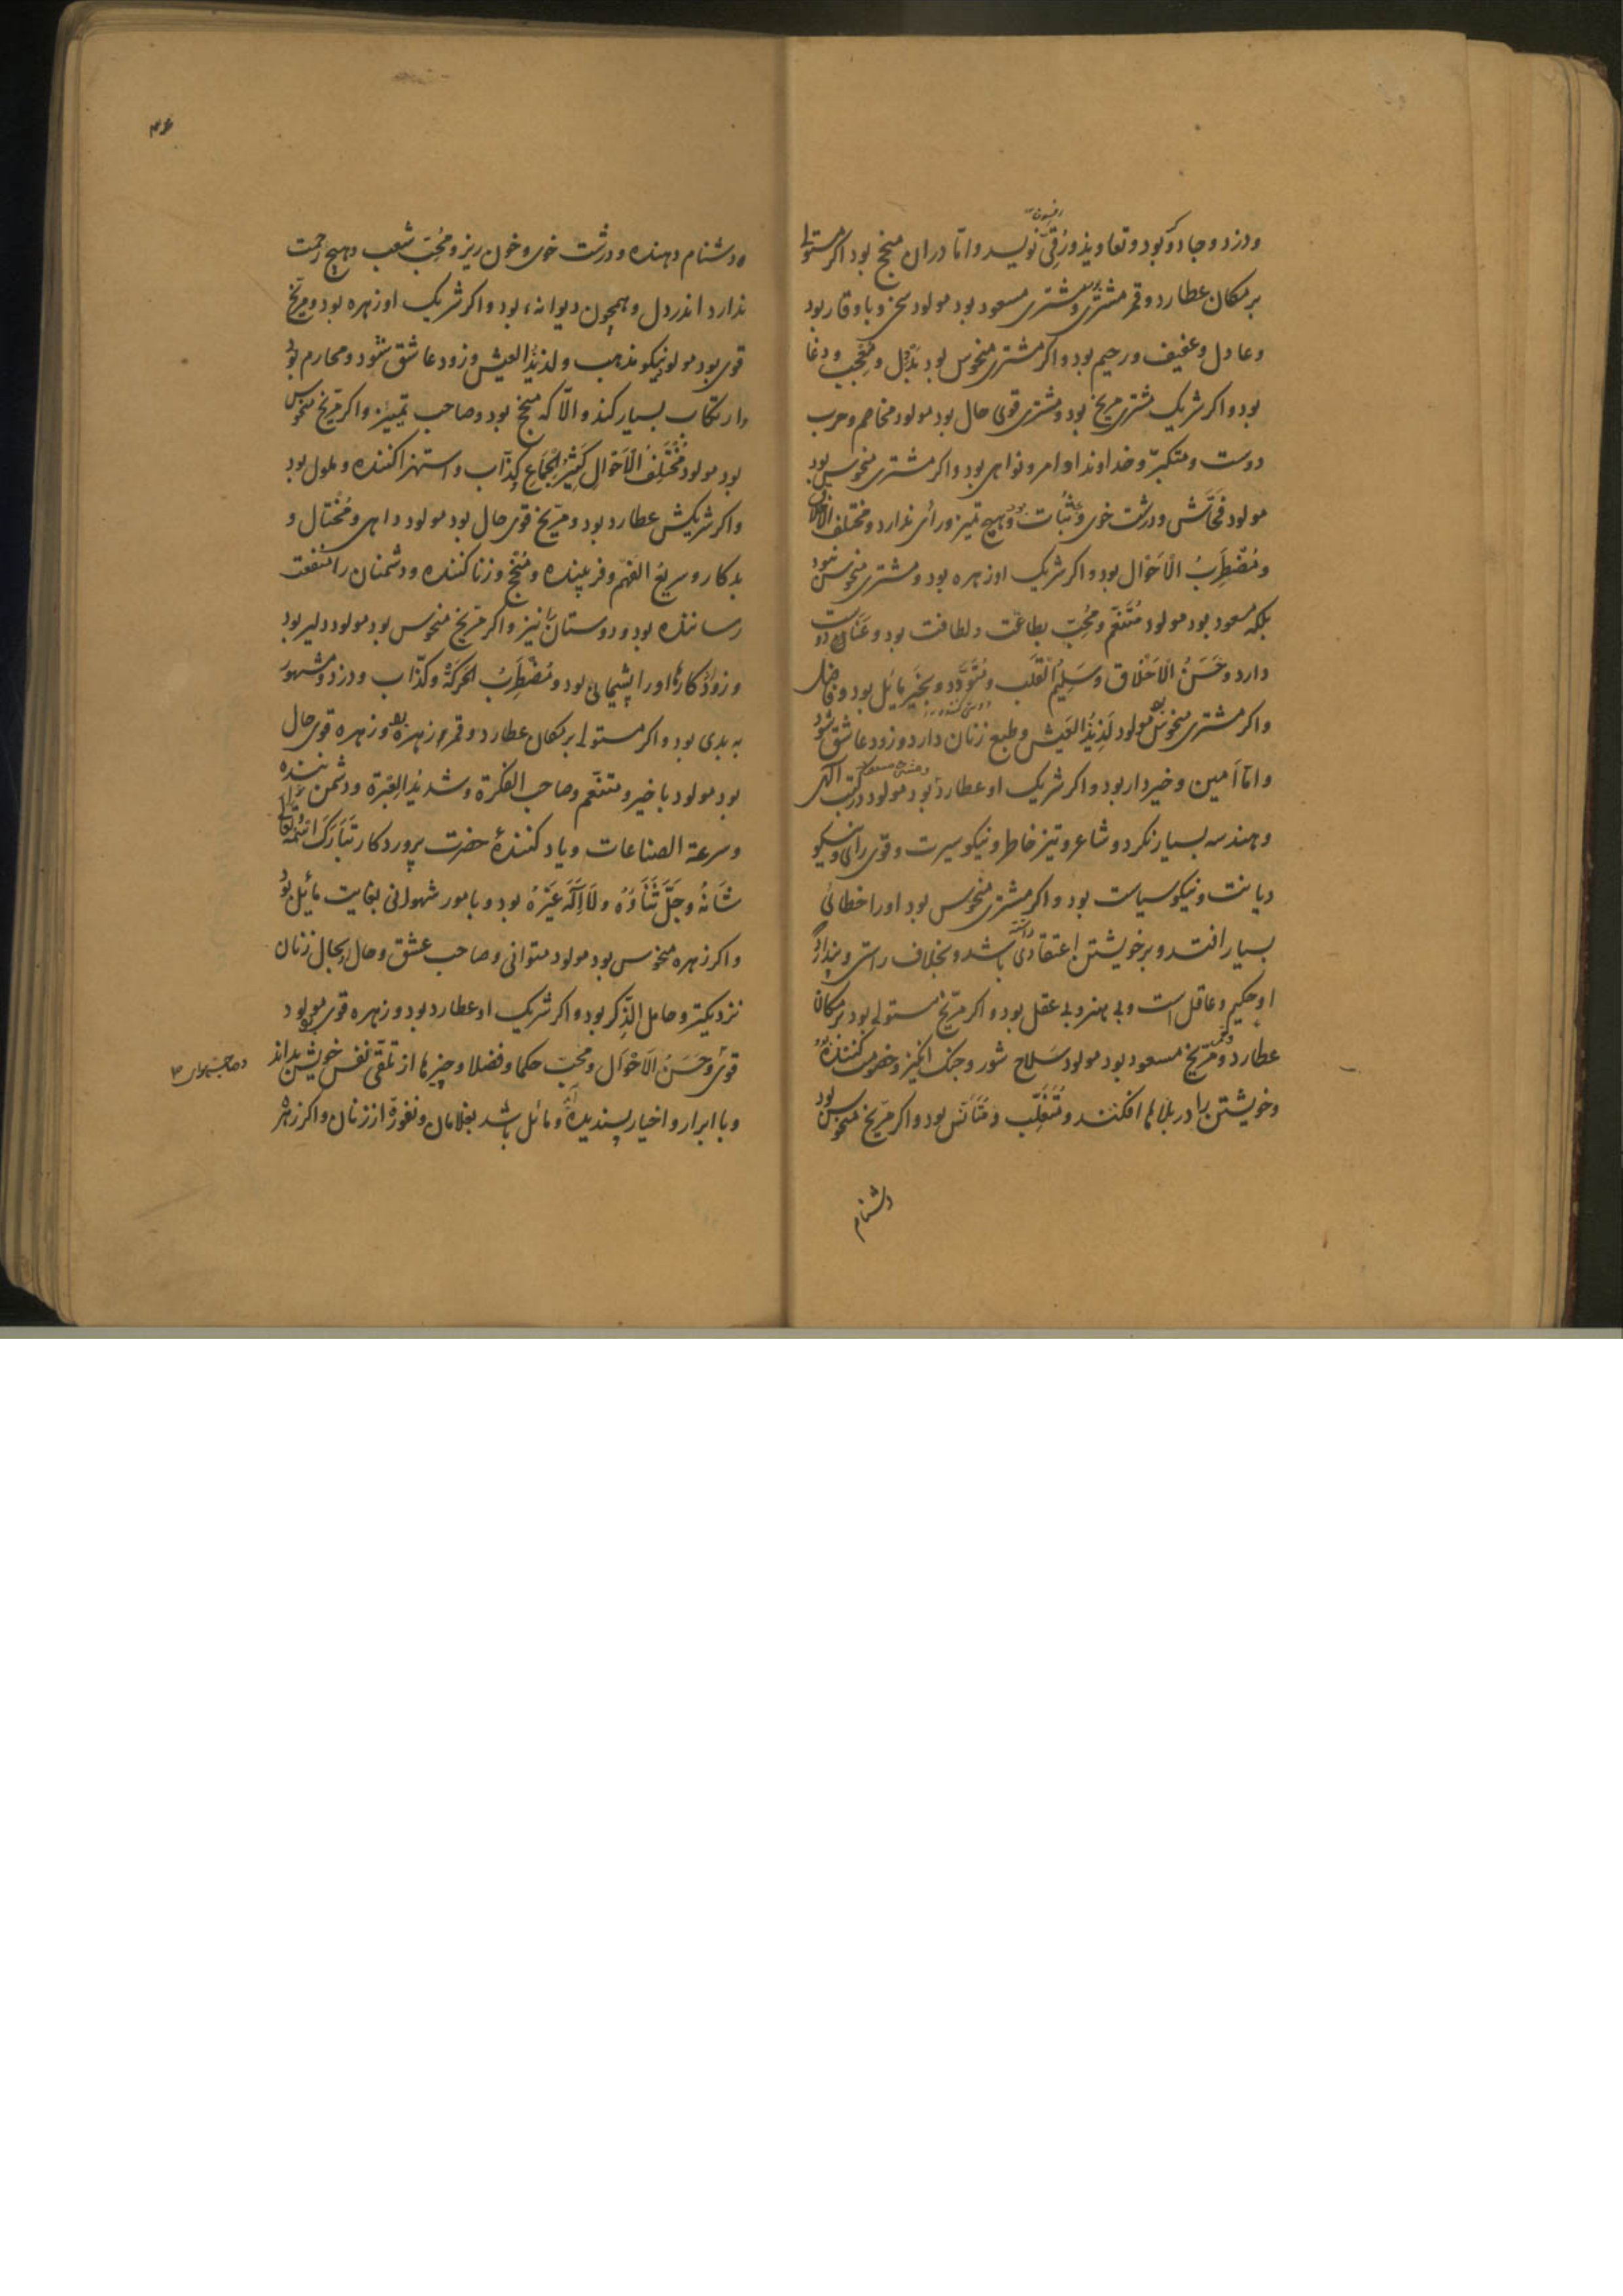 ودزد و جادو بود و تعاویذ و رُقیّ نویسد و امّا دران منجح بود اکر مستولے
افسون
بر مکان عطارد و قمر مشتری بود و مشتری مسعود بود مولود سخی و با وقار بود
و عادل و عفیف و رحیم بود و اکر مشتری منحوس بود و معجب و دغا
بود و اکر شریک مشتری مریخ بود و مشتری قوی حال بود مولود مخاصم و حرب
دوست و متکبّر و خداوند اوامر و نواهی بود و اکر مشتری منحوس بود
مولود فحّاش و درشت خوی و ثبات و هیچ تمیز و رائی ندارد و مختلف
و مُضْطَرِبُ الاَحْوَال بود و اکر شریک او زهره بود و مشتری منحوس نبود
بلکه مسعود بود مولود مُتنعّم و مُحِبّ و لطافت بود و دوست
دارد و حَسَنُ الاَخلاَق و سَلِیمُ القَلب و مُتودّد و بخیر مائل بود و فاضل
و اکر مشتری منحوس بود مولود لَذِیذُ العَیش و طبع زنان دارد و زود عاشق شود
و امّا اَمین و خیردار بود و اکر شریک او عطارد بود مولود در کتب الٰهی
و مشتری مسعود
و هندسه بسیار نکرد و شاعر و تیز خاطر و نیکو سیرت و قوی رای و نیکو
دیانت و نیکو سیاست بود و اکر مشتری منحوس بود او را خطائی
بسیار افتد و بر خویشتن اعتقادی داشته باشد و بخلاف راستی و پندارد
او حکیم و عاقل است و بی هنر و بی عقل بود و اکر مرّیخ مستولے بود بر مکان
عطارد و قمر و مرّیخ مسعود بود مولود سَلاح شور و جنک انکیز و خصومت کننده بود
و خویشتن را در بلاها افکنند و مُتَغلّب و بود و اکر مرّیخ منحوس بود
دشنام
۴۶
دشنام دهنده و درشت خوی و خون ریز و مُحِبّ شعب و هیچ رحمت
ندارد اندر دل و همچون دیوانه بود و اکر شریک او زهره بود و مرّیخ
قوی بود مولود نیکو مذهب و لذیذُ العیش و زود عاشق شود و محارم بود
و ارتکاب بسیار کند و الّا که منجح بود و صاحب تمییز و اکر مرّیخ منحوس
بود مولود مُخْتَلِفُ الاَحْوَالِ کَثِیْرُ الجِمَاع کذّاب و استهزا کننده و ملول بود
و اکر شریکش عطارد بود و مرّیخ قوی حال بود مولود داهی و مُختال و
بدکار و سریعُ الفَهم و فریبنده و مُنجِح و زنا کننده و دشمنان را منفعت
رساننده بود و دوستان را نیز و اکر مرّیخ منحوس بود مولود دلیر بود
و زود کارها او را پشیمانی بود و مُضْطَرِبُ الحَرَکَة و کذّاب و دزد و مشهور
به بدی بود و اکر مستولے بر مکان عطارد و قمر زهره بود و زهره قوی حال
بود مولود با خیر و متنعّم و صاحب الفکرة و شدیدُ الغَیْرة و دشمن
و سرعة الصناعات و یاد کنندۀ حضرت پروردکار تَبَارَکَ اسْمُهُ و تعالٰی
شَانُهُ وجَلَّ ثَنَاؤُهُ ولَا اِلٰهَ غَیْرُهُ بود و بامور شهوانی بغایت مائل بود
و اکر زهره منحوس بود مولود متوانی و صاحب عشق و حال زنان
نزدیکتر و حامل الذّکر بود و اکر شریک او عطارد بود و زهره قوی بود مولود
قوی و حَسَنُ الاَحْوَال و محبّ حکما و فضلا و چیزها از نفس خویش بداند
و با ابرار و اخیار پسندیده و مائل باشد بغلامان و نفور از زنان و اکر زهره